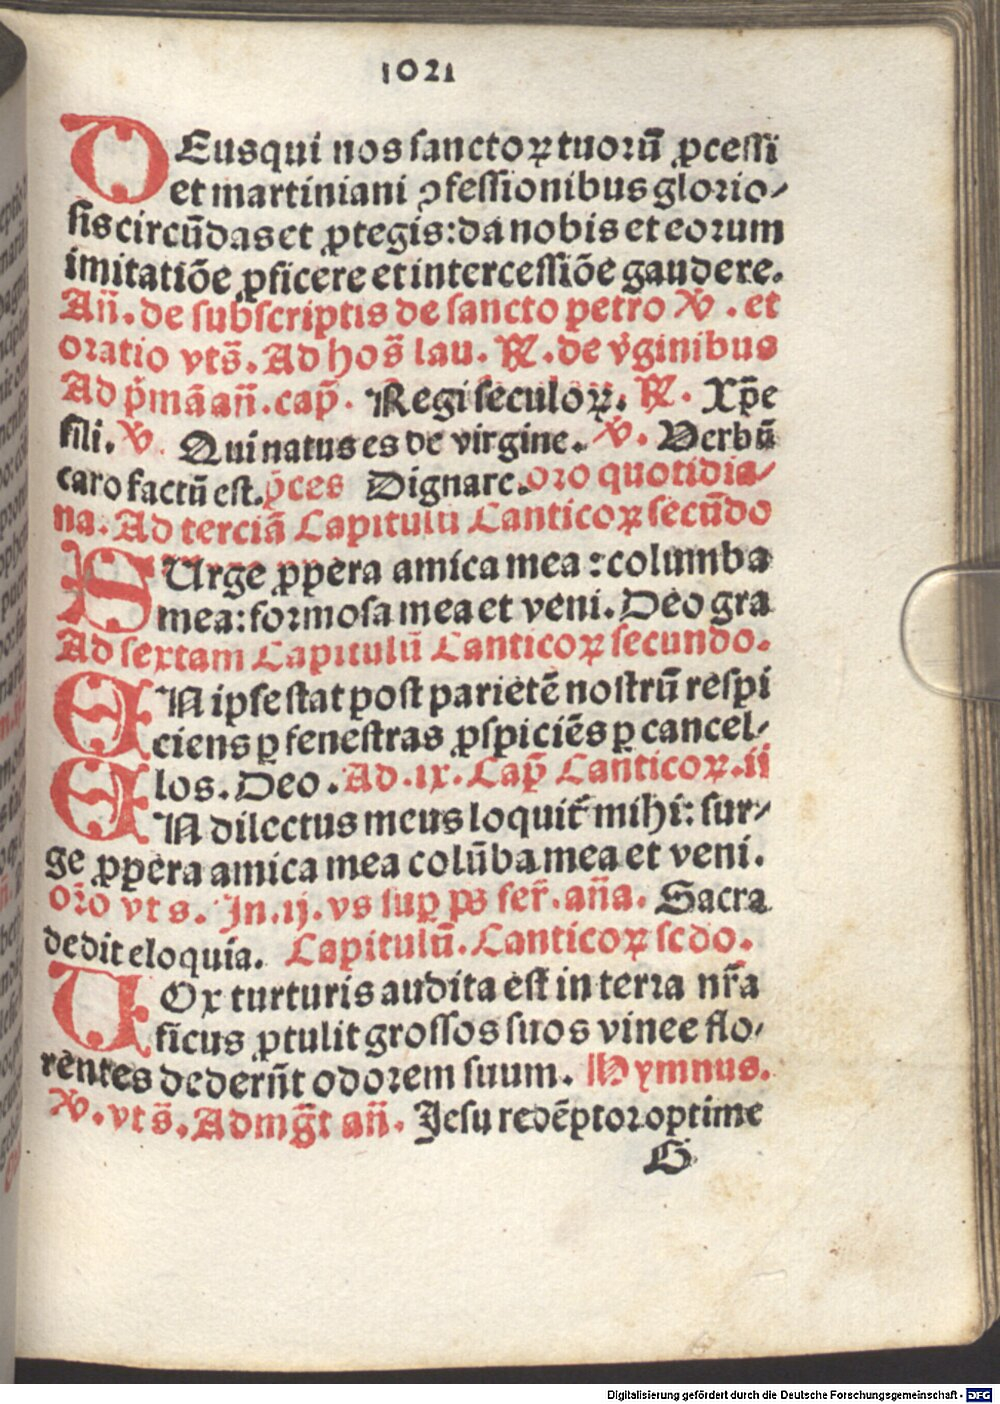 1021
DEus qui nos sanctoꝝ tuorū ꝓcessi
et martiniani ꝯfessionibus glorio⸗
sis circūdas et ꝓtegis: da nobis et eorum
imitatiōe ꝓficere et intercessiōe gaudere.
An̄. de subscriptis de sancto petro ℣. et
oratio vts̄. Ad hos̄ lau. ℟. de v̓ginibus
Ad p̓mā an̄. cap̄. Regi seculoꝝ. ℟. Xp̄e
fili. ℣. Qui natus es de virgine. ℣. Verbū
caro factū est. p̄ces Dignare. oro quotidia⸗
na. Ad terciā Capitulū Canticoꝝ secūdo
SUrge ꝓꝑera amica mea: columba
mea: formosa mea et veni. Deo gra
Ad sextam Capitulū Canticoꝝ secundo.
EN ipse stat post parietē nostrū respi
ciens ꝑ fenestras ꝓspiciēs ꝑ cancel⸗
los. Deo. Ad .ix. Cap̄ Canticoꝝ. ii
EN dilectus meus loquit᷑ mihi: sur⸗
ge ꝓꝑera amica mea colūba mea et veni.
or̄o vt s. In .ij. vs suꝑ ps fer̄. an̄a. Sacra
dedit eloquia. Capitulū. Canticoꝝ scdo.
VOx turturis audita est in terra nr̄a
ficus ꝓtulit grossos suos vinee flo⸗
rentes dederūt odorem suum. Hymnus.
℣. vts̄. Ad mg̅t an̄. Jesu redēptor optime
G
Digitalisierung gefördert durch die Deutsche Forschungsgemeinschaft - DFG